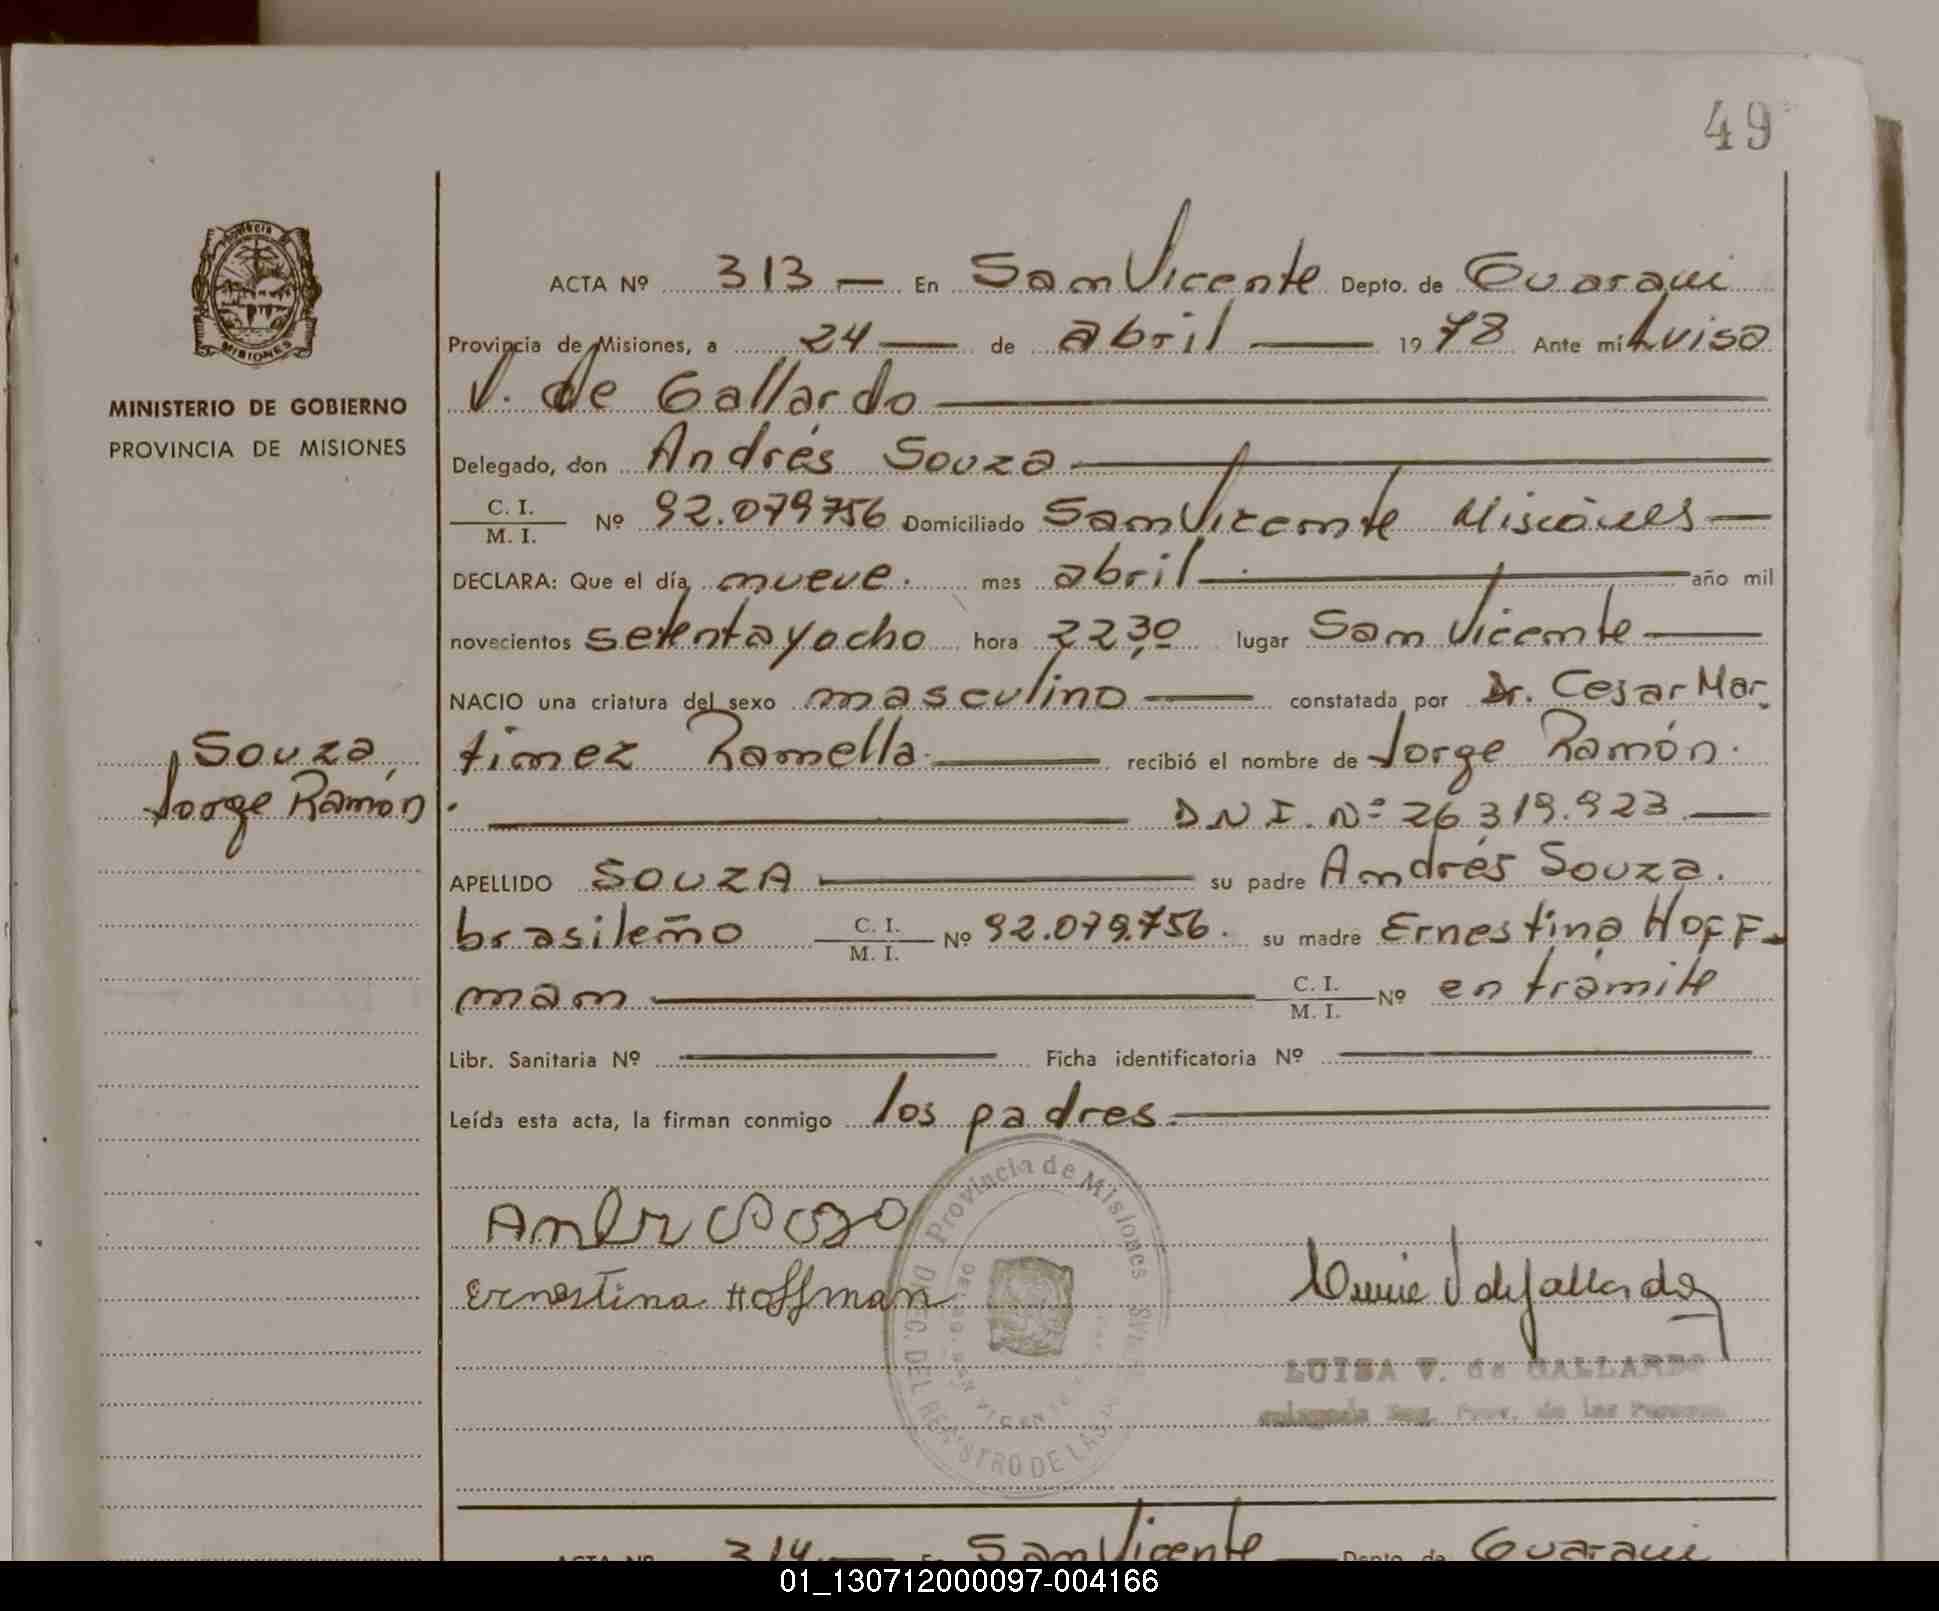 49
ACTA Nº 313 — En San Vicente Depto. de Guarani
Provincia de Misiones, a 24 — de abril — 1978 Ante mi Luisa
V. de Gallardo
Delegado, don Andrés Souza
C. I. / M. I. Nº 92.079756 Domiciliado San Vicente Misiones —
DECLARA: Que el día nueve. mes abril — año mil
novecientos setentayocho hora 22,30 lugar San Vicente —
NACIO una criatura del sexo masculino — constatada por Dr. Cesar Mar-
tinez Ramella — recibió el nombre de Jorge Ramón.
D N I. Nº 26 319.923 —
APELLIDO SOUZA — su padre Andrés Souza.
brasileño C. I. / M. I. Nº 92.079.756. su madre Ernestina HOFF-
man — C. I. / M. I. Nº en trámite
Libr. Sanitaria Nº — Ficha identificatoria Nº —
Leída esta acta, la firman conmigo los padres.
Ernestina Hoffman
V de Gallardo
LUISA V. de GALLARDO
Provincia de Misiones
DIREC. DEL REGISTRO DE LAS
DELEG. SAN VICENTE
Provincia de
MISIONES
MINISTERIO DE GOBIERNO
PROVINCIA DE MISIONES
Souza,
Jorge Ramón
ACTA Nº 314 — En San Vicente — Depto. de Guarani
01_130712000097-004166